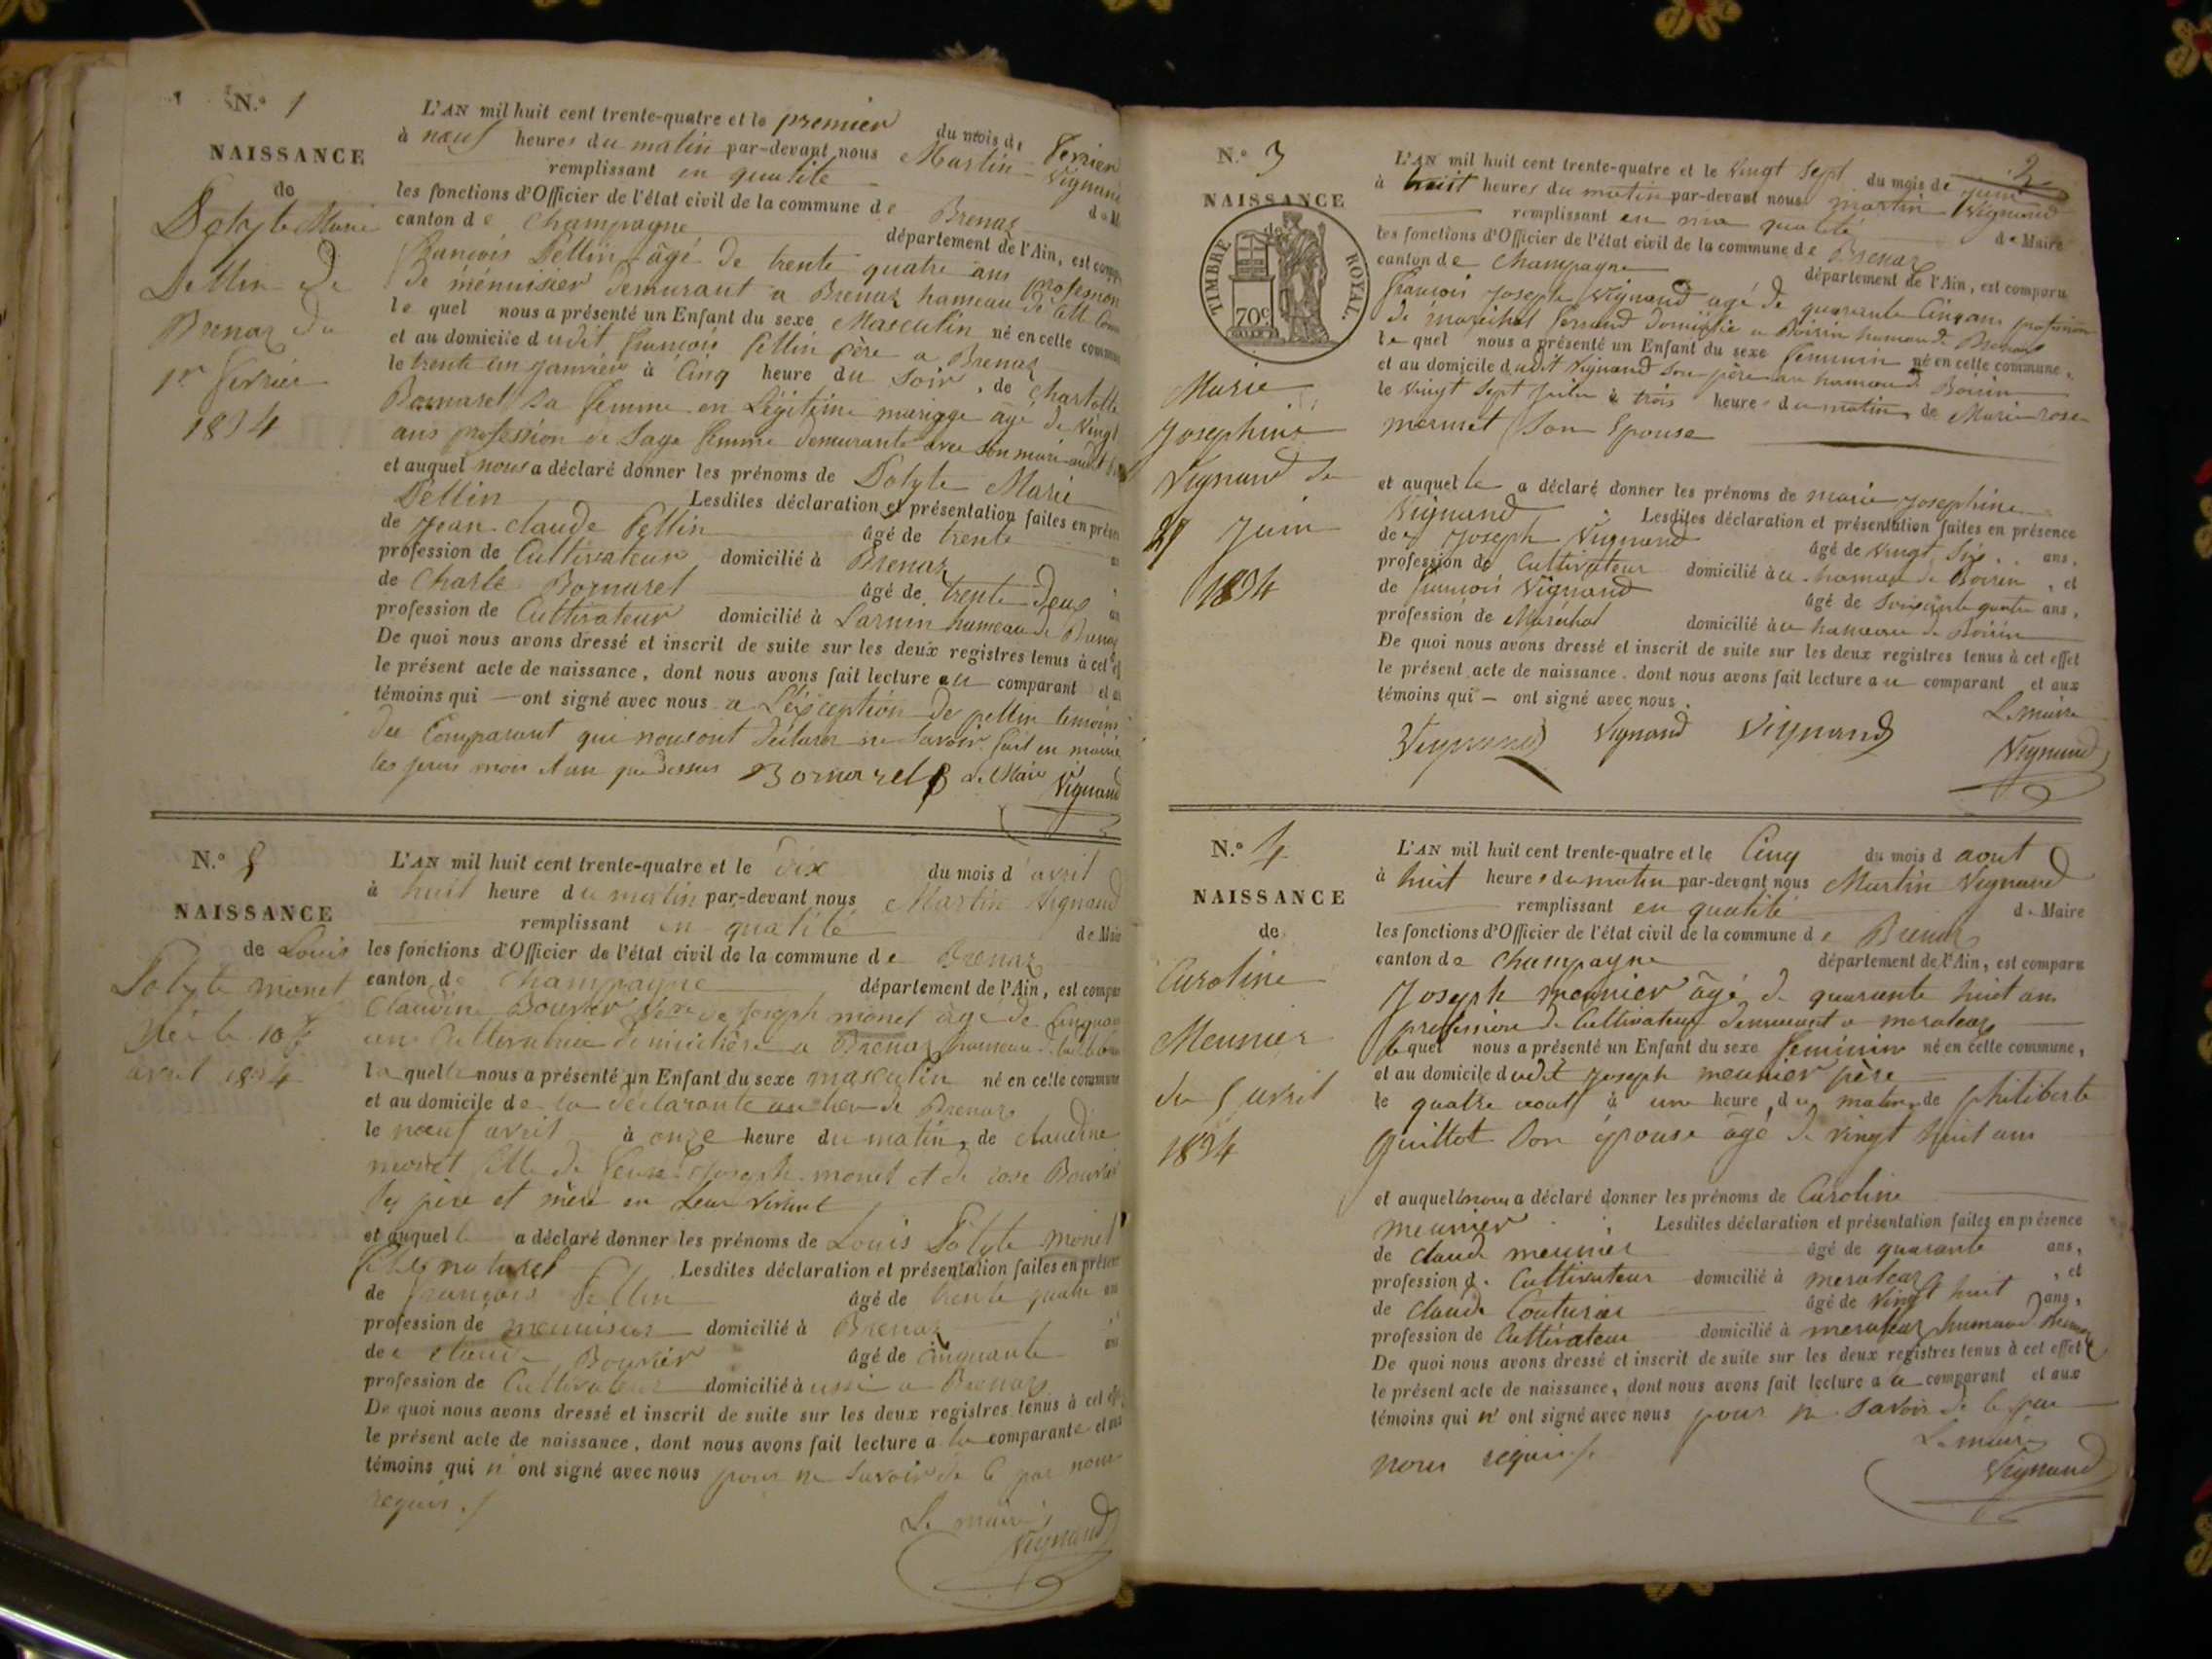 N.° 1
NAISSANCE
de
Polyte Marie
Pellin de
Brenaz du
1er fevrier
1834
L'AN mil huit cent trente-quatre et le premier du mois de fevrier
à neuf heures du matin par-devant nous Martin Vignand
remplissant en qualité de M
les fonctions d'Officier de l'état civil de la commune de Brenaz
canton de Champagne département de l'Ain, est comp
françois Pellin âgé de trente quatre ans profession
de ménuisier demurant a Brenaz hameau de cette Com
le quel nous a présenté un Enfant du sexe Masculin né en celle commu
et au domicile dudit françois Pellin père a Brenaz
le trente un janvier à Cinq heure du Soir, de Charlotte
Bornarel sa femme en Légitime mariage âgé de Vingt
ans profession de Sage femme demurante avec son mari audit
et auquel nous a déclaré donner les prénoms de Polyte Marie
Pellin Lesdites déclaration et présentation faites en prése
de Jean claude Pellin âgé de trente
profession de Cultivateur domicilié à Brenaz
de Charle Bornarel âgé de trente deux
profession de Cultivateur domicilié à Larnin hameau de Brenaz
De quoi nous avons dressé et inscrit de suite sur les deux registres tenus à cet ef
le présent acte de naissance, dont nous avons fait lecture au comparant et a
témoins qui ont signé avec nous a L'éxception de pellin temoins
du Comparant qui nous ont déclarer ne Savoir fait en mairie
les jours mois et an que dessus Bornarel Le Maire Vignand
N.°
NAISSANCE
de Louis
Polyte monet
Né le 10
avril 1834
L'AN mil huit cent trente-quatre et le dix du mois d'avril
à huit heure du matin par-devant nous Martin Vignand
remplissant en qualité de Mai
les fonctions d'Officier de l'état civil de la commune de Brenaz
canton de Champagne département de l'Ain, est compar
Claudine Bouvier de Joseph monet âgé de
domicilière a Brenaz hameau
la quelle nous a présenté un Enfant du sexe masculin né en celle commune
et au domicile de la déclarante au lieu de Brenaz
le neuf avril à onze heure du matin, de claudine
monet fille de Joseph monet et de rose Bouvier
père et mère en Leur vivant
et auquel a déclaré donner les prénoms de Louis Polyte monet
naturel Lesdites déclaration et présentation faites en présen
de françois Pellin âgé de trente quatre
profession de menuisier domicilié à Brenaz
de claude Bouvier âgé de cinquante
profession de Cultivateur domicilié à ussi a Brenaz
De quoi nous avons dressé et inscrit de suite sur les deux registres tenus à cet ef
le présent acte de naissance, dont nous avons fait lecture a la comparante et aux
témoins qui n'ont signé avec nous pour ne Savoir de ce par nous
requis
Le maire
Vignand
N.° 3
NAISSANCE
de
TIMBRE ROYAL.
70c
Marie
Josephine
Vignand de
27 Juin
1834
2
L'AN mil huit cent trente-quatre et le Vingt Sept du mois de juin
à huit heures du matin par-devant nous martin Vignand
remplissant en ma qualité de Maire
les fonctions d'Officier de l'état civil de la commune de Brenaz
canton de Champagne département de l'Ain, est comparu
françois Joseph Vignand agé de quarante Cinq ans profession
de maréchal ferrand domicilié a Boirin hameau de Brenaz
le quel nous a présenté un Enfant du sexe feminin né en celle commune,
et au domicile dudit Vignand Son père au hameau de Boirin
le Vingt Sept à trois heures du matin, de Marie rose
mermet Son Epouse
et auquel le a déclaré donner les prénoms de marie Josephine
Vignand Lesdites déclaration et présentation faites en présence
de Joseph Vignand âgé de Vingt Six ans,
profession de Cultivateur domicilié àu hameau de Boirin, et
de françois Vignand âgé de Soixante quatre ans,
profession de Maréchal domicilié àu hameau de Boirin
De quoi nous avons dressé et inscrit de suite sur les deux registres tenus à cet effet
le présent acte de naissance, dont nous avons fait lecture au comparant et aux
témoins qui ont signé avec nous.
Le maire
Vignand Vignand Vignand Vignand
N.° 4
NAISSANCE
de
Caroline
Meunier
du 5 avril
1834
L'AN mil huit cent trente-quatre et le Cinq du mois d aout
à huit heures du matin par-devant nous Martin Vignand
remplissant en qualité de Maire
les fonctions d'Officier de l'état civil de la commune de Brenaz
canton de Champagne département de l'Ain, est comparu
Joseph meunier âgé de quarante huit ans
profession de Cultivateur demeurant a meraleaz
le quel nous a présenté un Enfant du sexe feminin né en celle commune,
et au domicile dudit Joseph meunier père
le quatre aout à une heure du matin, de philiberte
guillot Son épouse âgé de vingt huit ans
et auquel nous a déclaré donner les prénoms de Caroline
meunier Lesdites déclaration et présentation faites en présence
de claude meunier âgé de quarante ans,
profession de Cultivateur domicilié à meraleaz, et
de claude Couturier âgé de Vingt huit ans,
profession de Cultivateur domicilié à meraleaz hameau de Brenaz
De quoi nous avons dressé et inscrit de suite sur les deux registres tenus à cet effet
le présent acte de naissance, dont nous avons fait lecture a u comparant et aux
témoins qui n'ont signé avec nous pour ne Savoir de ce par
nous requis
Le maire
Vignand